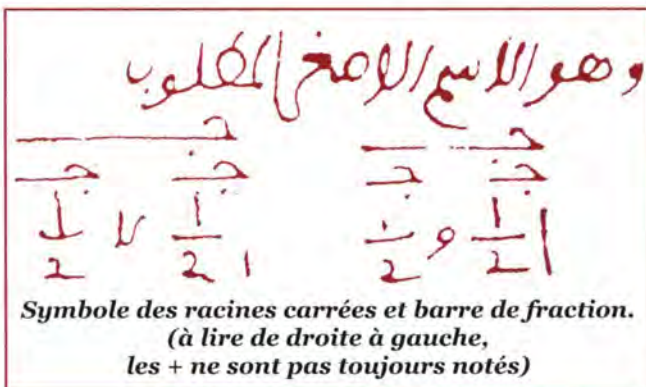 وهو الاسم الاصغر المطلوب
جـ جـ
جـ جـ جـ جـ
1 1/2 و 1/2 1 1/2 لا 1/2
Symbole des racines carrées et barre de fraction.
(à lire de droite à gauche,
les + ne sont pas toujours notés)